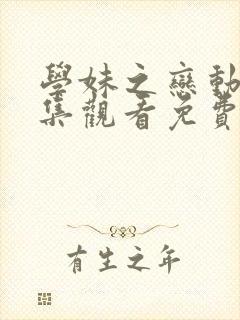 學妹之戀動
集觀看免費
有生之年